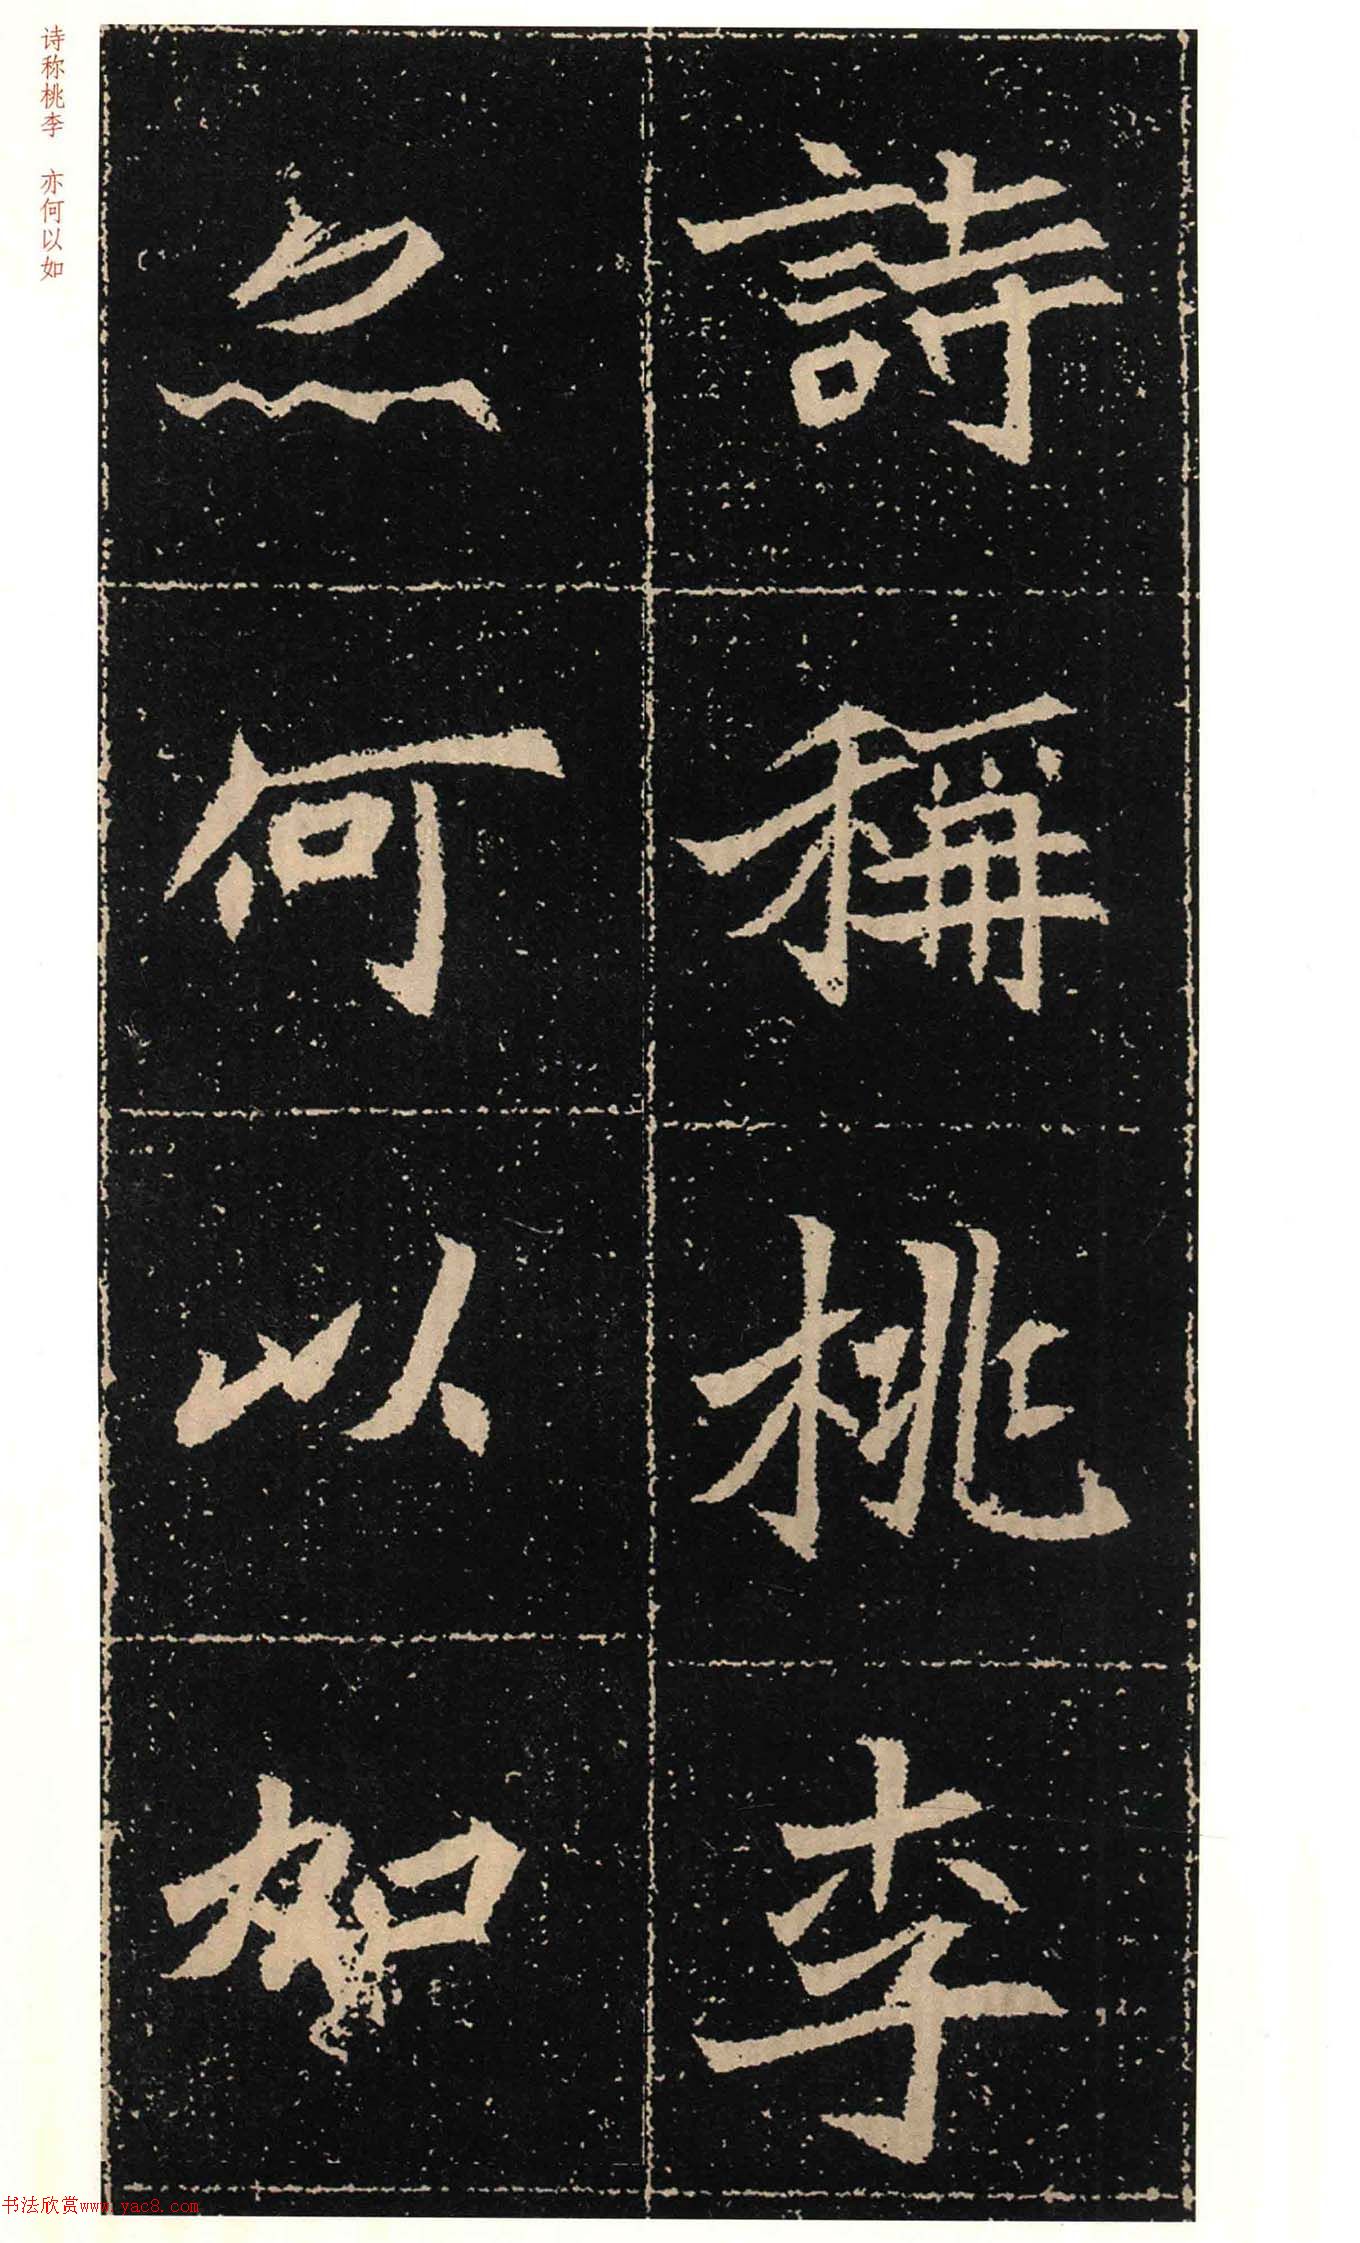 詩稱桃李
亦何以如
诗称桃李 亦何以如
书法欣赏www.yac8.com